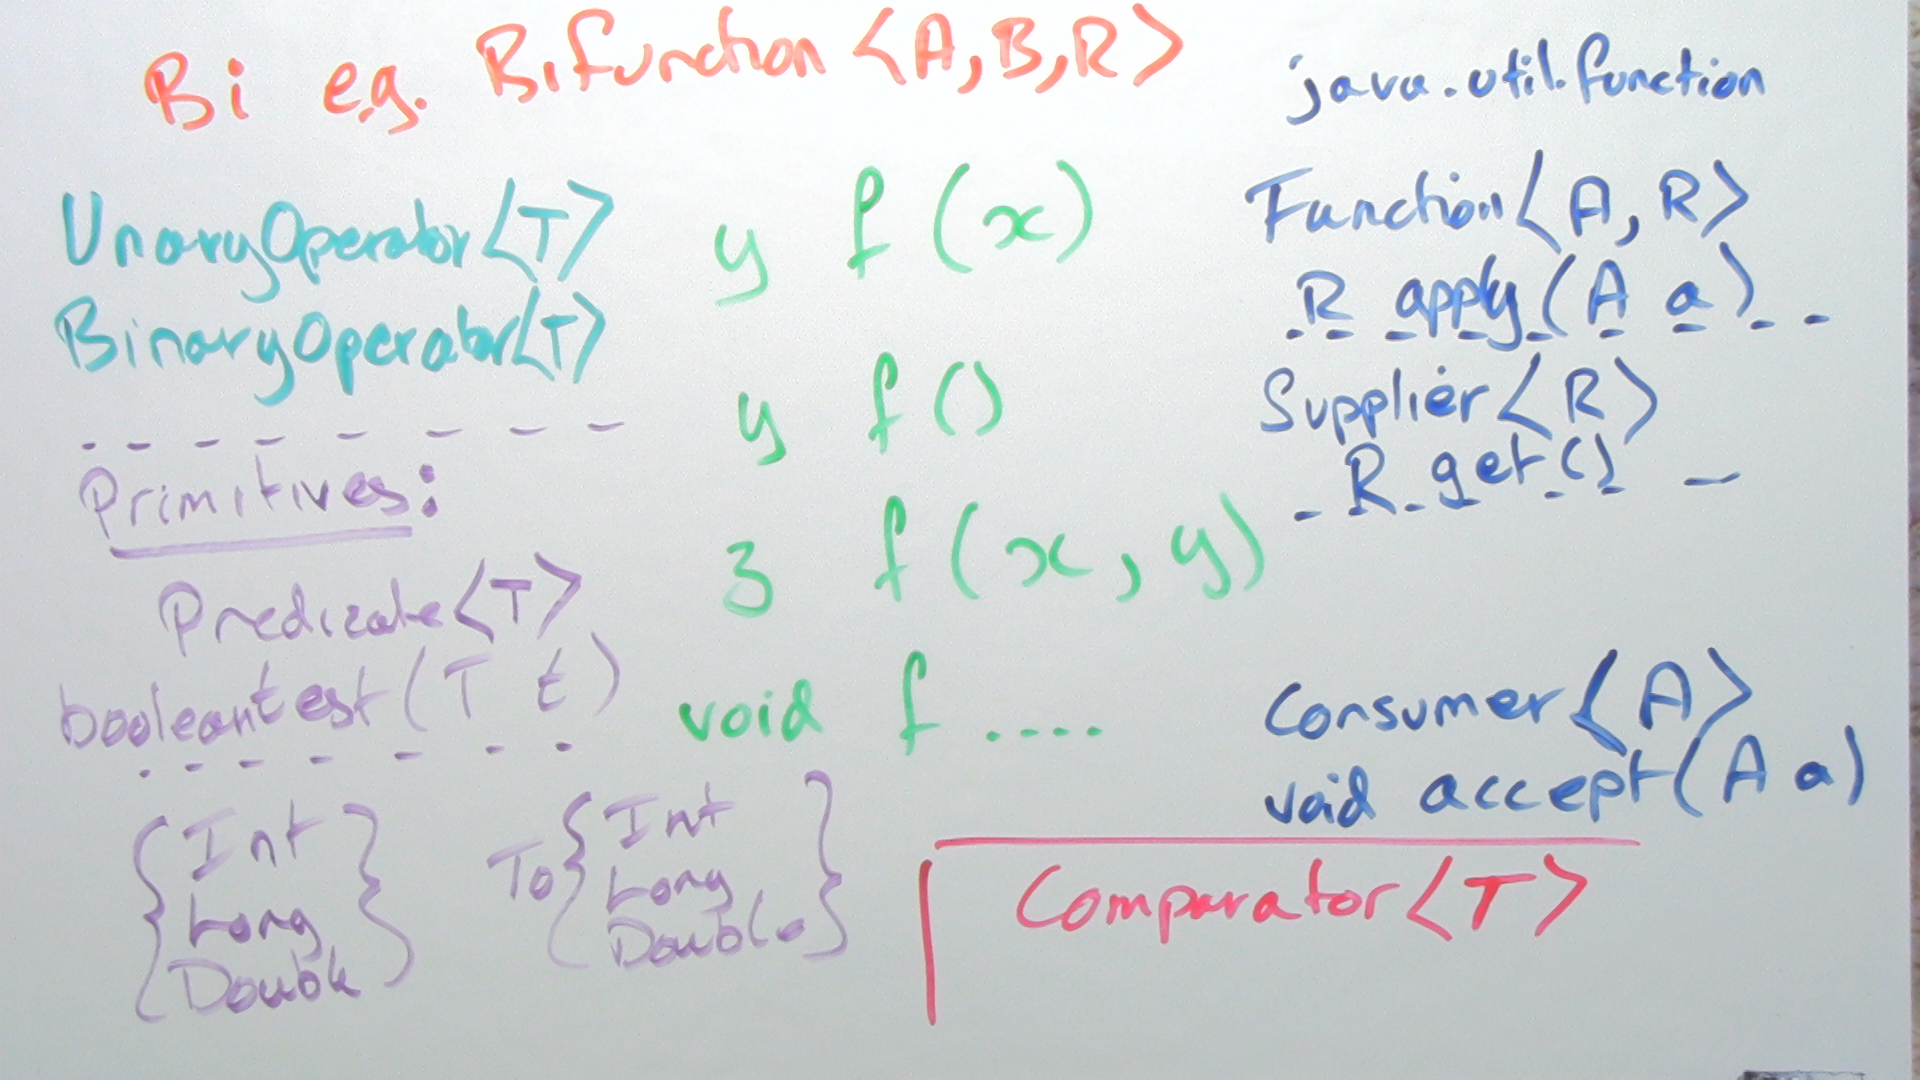 Bi e.g. BiFunction <A,B,R>
java.util.function
UnaryOperator<T>
BinaryOperator<T>
Primitives:
Predicate<T>
boolean test(T t)
{ Int
Long
Double }
To { Int
Long
Double }
y f(x)
y f()
z f(x, y)
void f ....
Function<A, R>
R apply(A a)
Supplier<R>
R get()
Consumer<A>
void accept(A a)
Comparator<T>